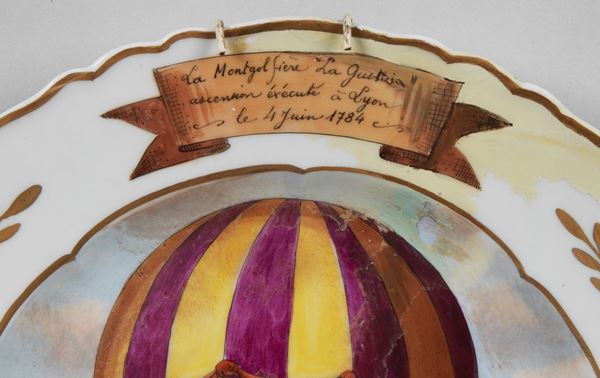 La Montgolfière "La Gustivia"
ascension éxécuté à Lyon
le 4 Juin 1784